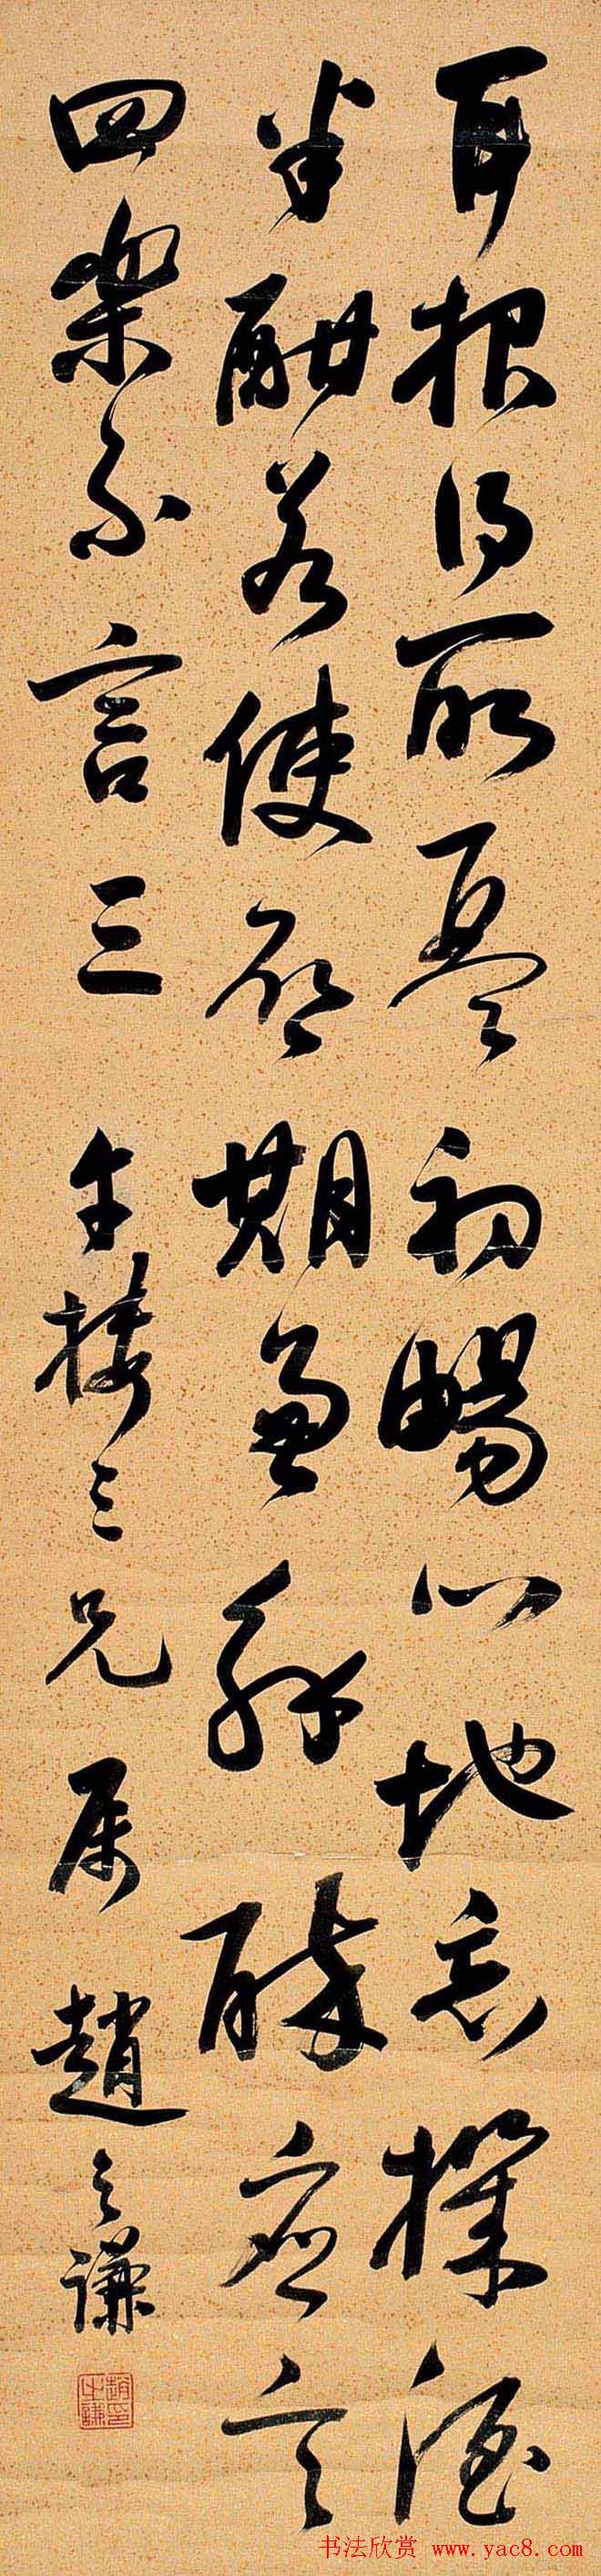 耳根得所琴初暢心地忘機酒
半酣若使啟期兼解醉應言
四樂不言三 午樓三兄属 趙之謙
趙之謙印
书法欣赏 www.yac8.com